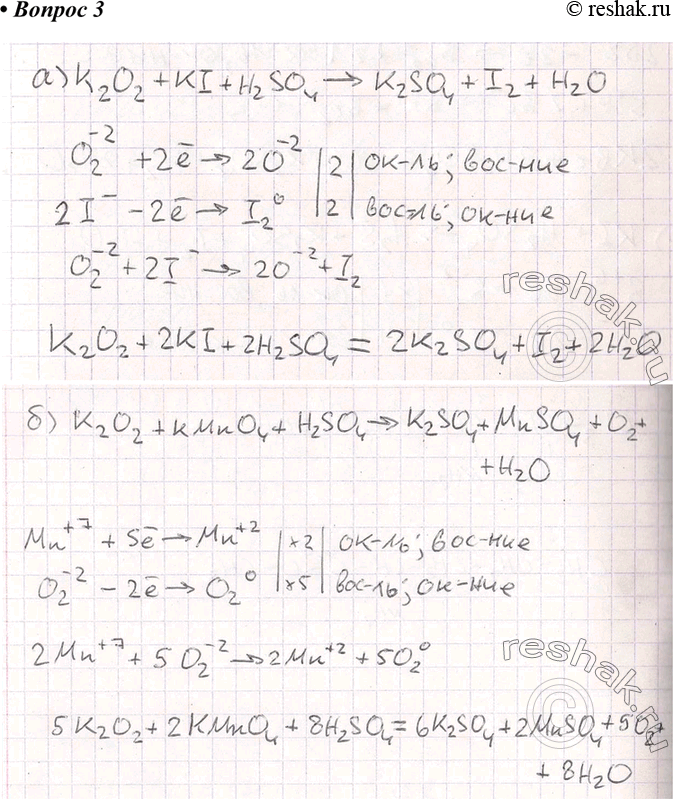 • Вопрос 3
© reshak.ru
а) K₂O₂ + KI + H₂SO₄ → K₂SO₄ + I₂ + H₂O
O₂⁻² + 2ē → 2O⁻² | 2 | ок-ль; вос-ние
2I⁻ - 2ē → I₂⁰ | 2 | вос-ль; ок-ние
O₂⁻² + 2I⁻ → 2O⁻² + I₂
K₂O₂ + 2KI + 2H₂SO₄ = 2K₂SO₄ + I₂ + 2H₂O
reshak.ru
©
б) K₂O₂ + KMnO₄ + H₂SO₄ → K₂SO₄ + MnSO₄ + O₂ +
+ H₂O
Mn⁺⁷ + 5ē → Mn⁺² | ×2 | ок-ль; вос-ние
O₂⁻² - 2ē → O₂⁰ | ×5 | вос-ль; ок-ние
2Mn⁺⁷ + 5O₂⁻² → 2Mn⁺² + 5O₂⁰
5K₂O₂ + 2KMnO₄ + 8H₂SO₄ = 6K₂SO₄ + 2MnSO₄ + 5O₂ +
+ 8H₂O
reshak.ru
©